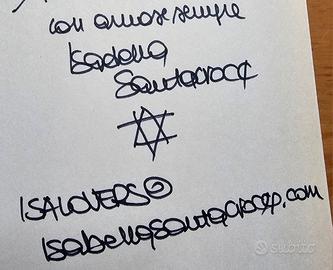 con amore sempre
Isabella
Santacroce
ISALOVERS@
isabellasantacroce.com
subito